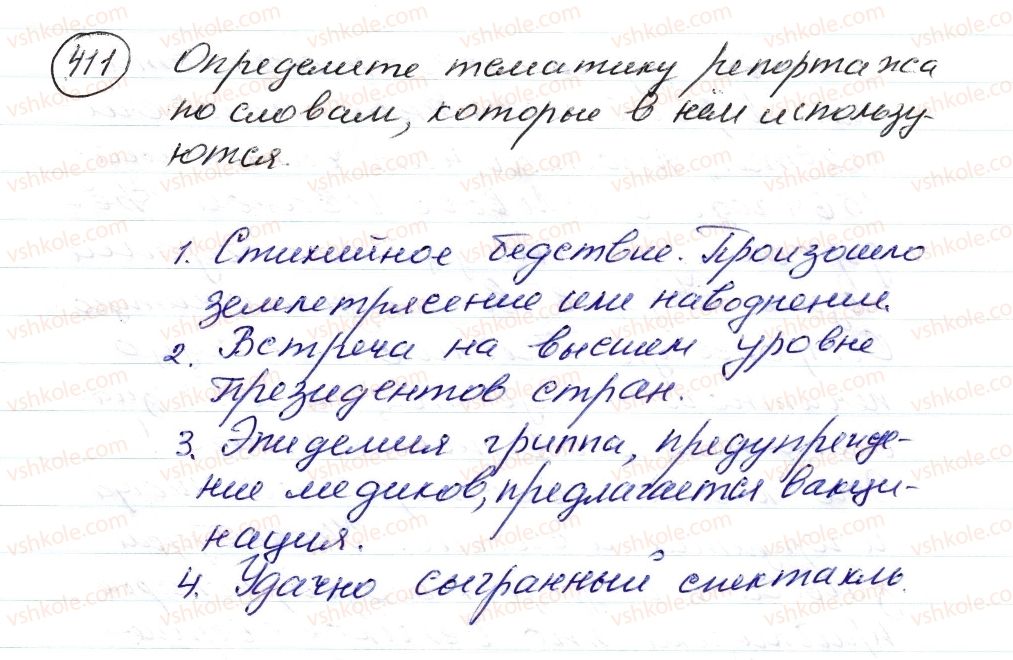 411 Определите тематику репортажа
по словам, которые в нём использу-
ются.
1. Стихийное бедствие. Произошло
землетрясение или наводнение.
2. Встреча на высшем уровне
президентов стран.
3. Эпидемия гриппа, предупрежде-
ние медиков, предлагается вакци-
нация.
4. Удачно сыгранный спектакль.